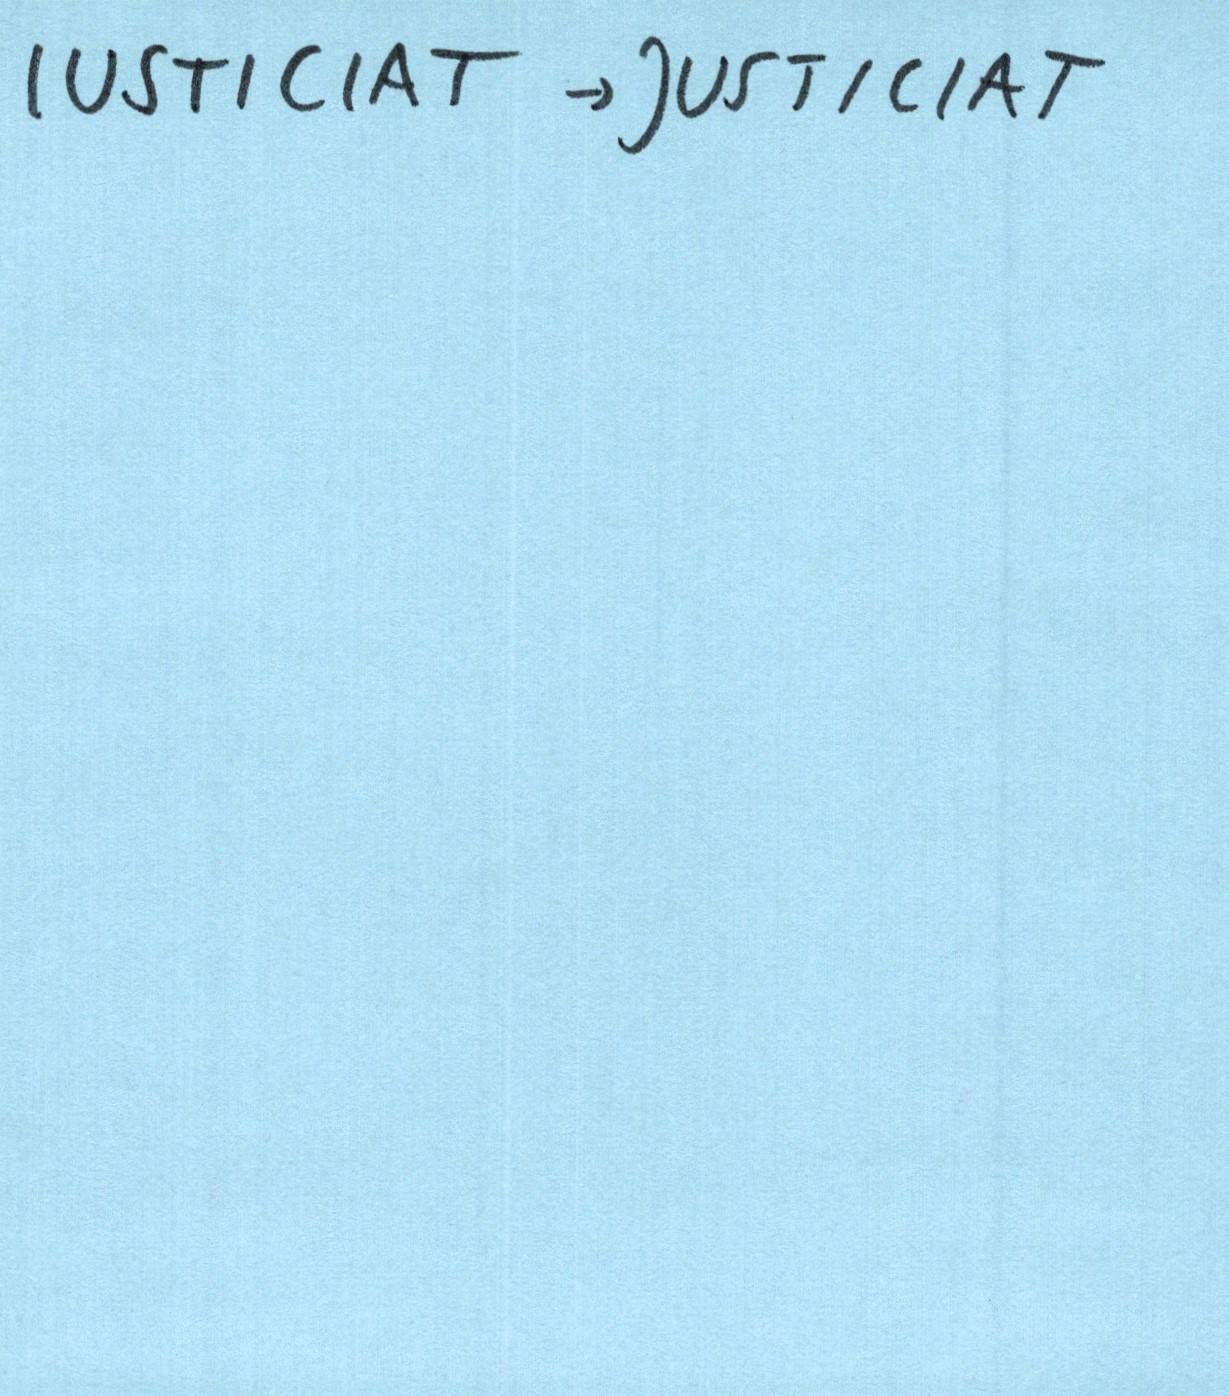 IUSTICIAT → JUSTICIAT